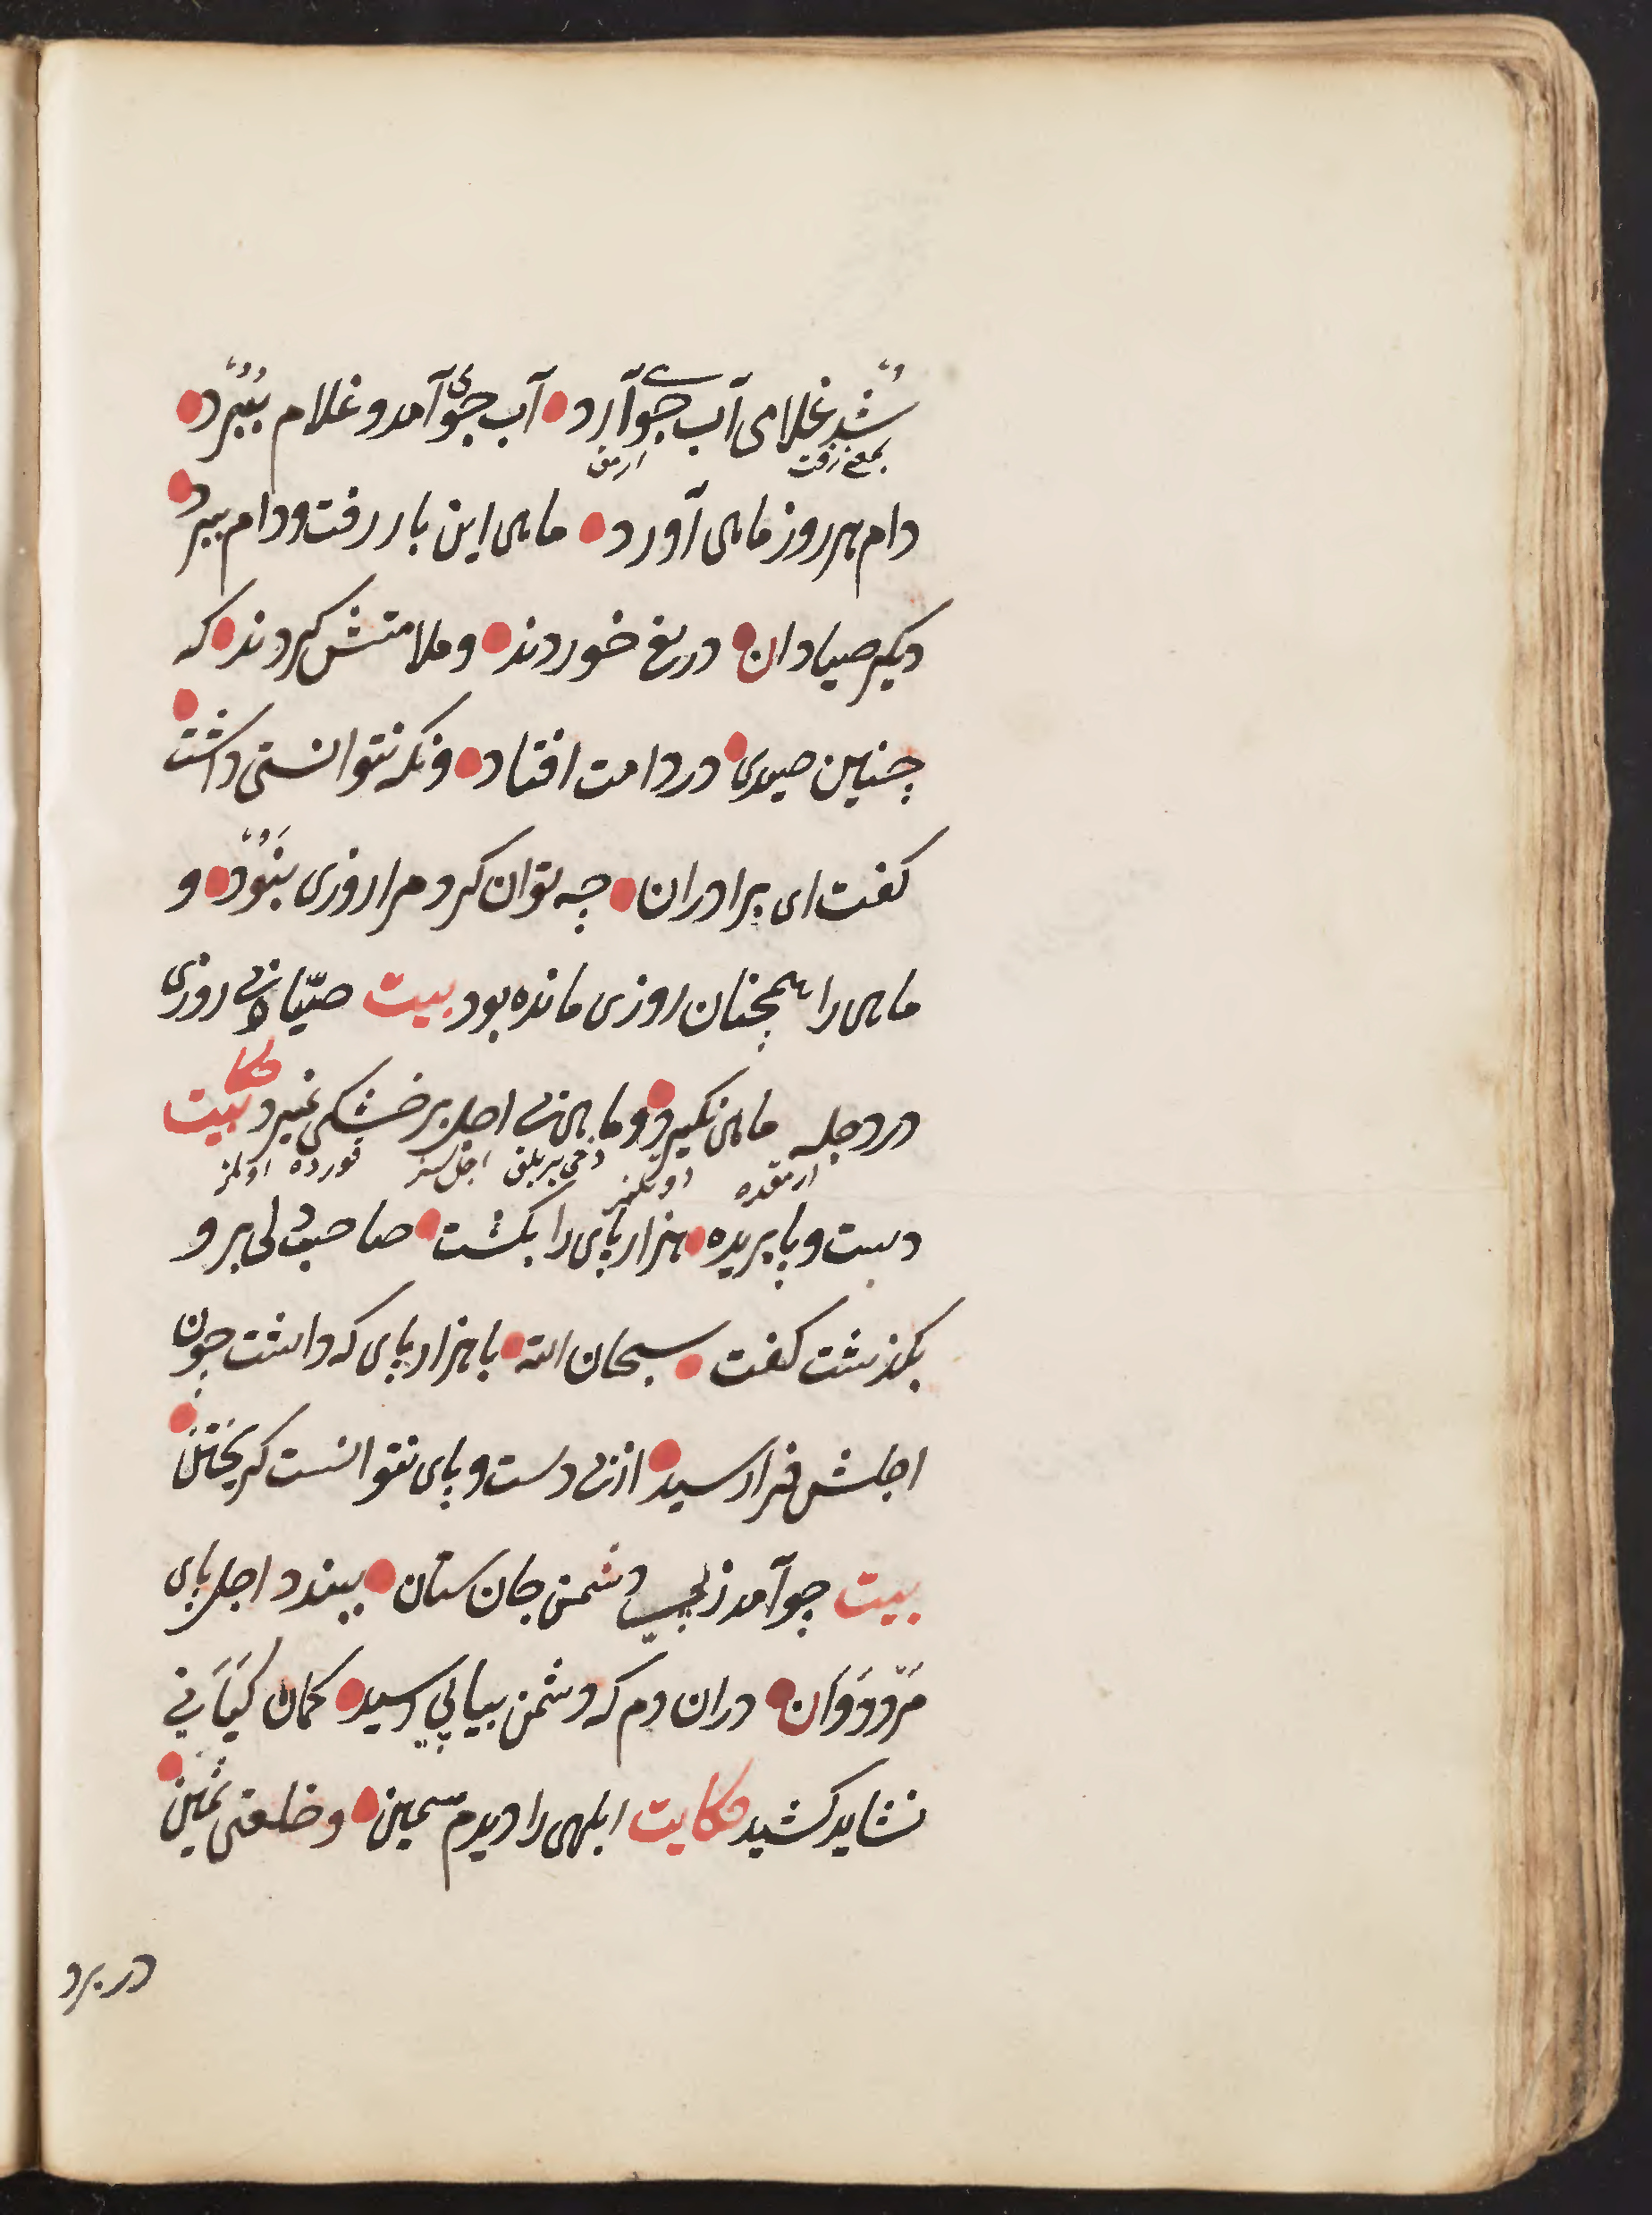 شد غلامی آب جوی آرد آب جوی آمد و غلام ببرد
بمعنی رفت
دام هر روز ماهی آورد ماهی این بار رفت و دام ببرد
دیکر صیادان دریغ خوردند و ملامتش کردند که
چنین صیدی در دامت افتاد و نکه نتوانستی داشت
کفت ای برادران چه توان کرد مرا روزی نبود و
ماهی را همچنان روزی مانده بود بیت صیّاد بی روزی
در دجله ماهی نکیرد و ماهی بی اجل بر خشکی نمیرد حکایت
دخی بر بلق اجل سز قورده اولمز
دست و پا بریده هزار پای را بکشت صاحب دلی برو
بکذشت کفت سبحان الله با هزار پای که داشت چون
اجلش فرا رسید از بی دست و پای نتوانست کریختن
بیت چو آمد ز پی دشمن جان ستان ببندد اجل پای
مرد دوان دران دم که دشمن بیاپی رسید کمان کیانی
نشاید کشید حکایت ابلهی را دیدم سمین و خلعتی ثمین
در برد